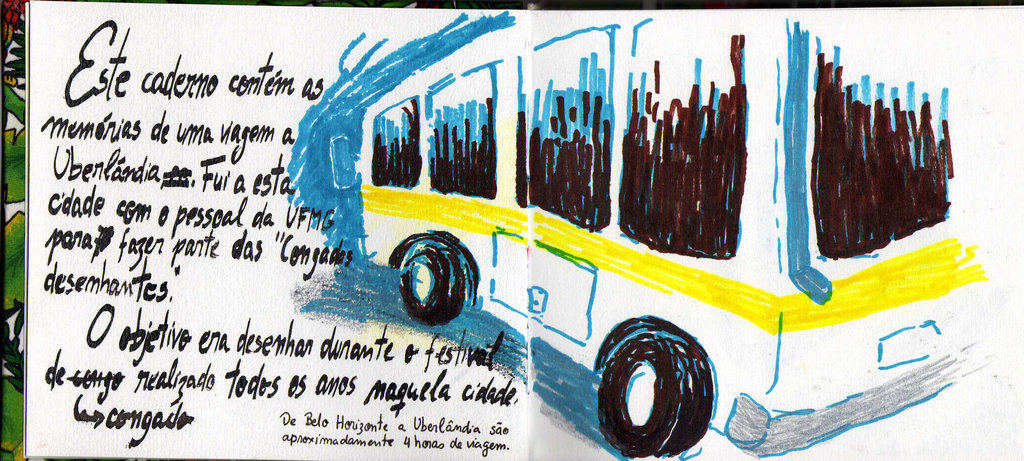 Este caderno contém as
memórias de uma viagem a
Uberlândia. Fui a esta
cidade com o pessoal da UFMG
para fazer parte das "Congados
desenhantes."
O objetivo era desenhar durante o festival
de congo realizado todos os anos naquela cidade.
congado
De Belo Horizonte a Uberlândia são
aproximadamente 4 horas de viagem.